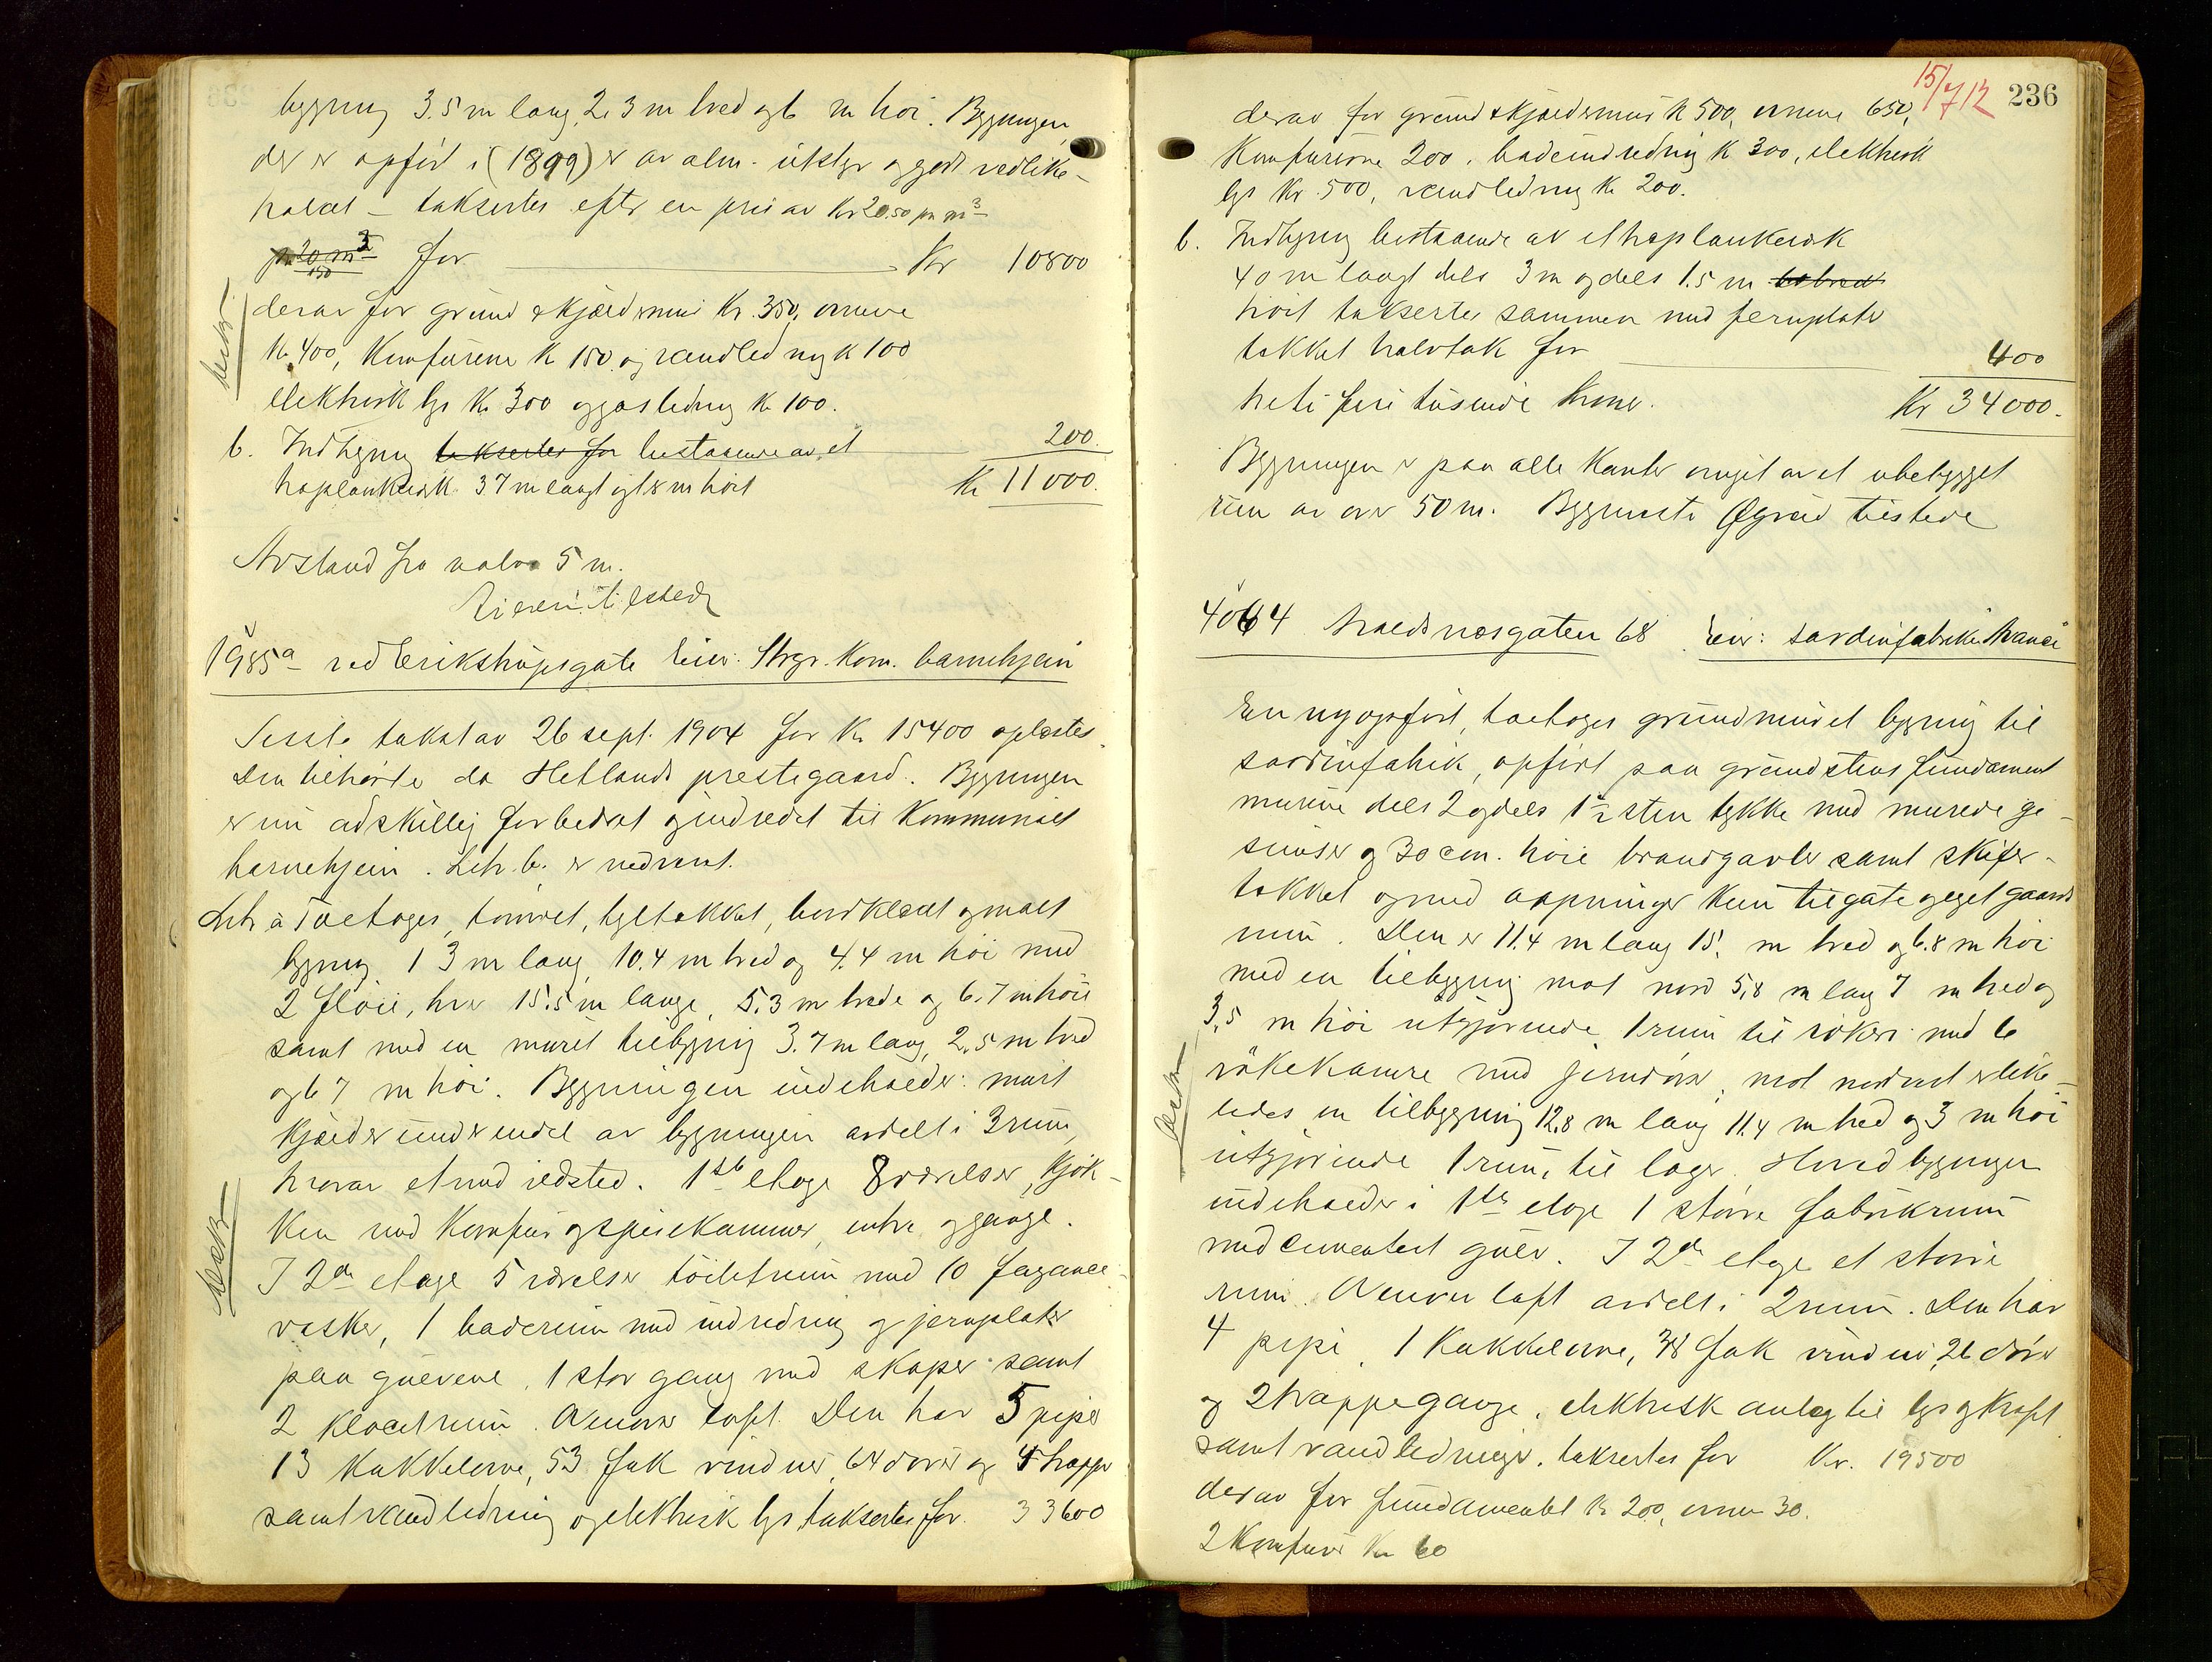 bygning 3.5 m lang, 2.3 m bred og 6 m høi. Bygningen
der er opført i (1899) er av alm. utstyr og godt vedlike-
holdt – taksertes efter en pris av Kr 20.50 pr m³
for Kr 10800
derav for grund & kjældermur Kr. 350, ovnene
Kr. 400, Komfurene Kr 150 og vandledning Kr 100
elektrisk lys Kr. 300 og gasledning Kr 100.
b. Indhegning taksertes for bestaaende av et 200.
haplankeværk 37 m langt og 1.8 m høit Kr 11000.
Avstand fra nabo 5 m.
Eieren tilstede
1985a ved Erikstrupsgate Eier: Stvgr. Kom. barnehjem
Sidste takst av 26 sept. 1904 for Kr. 15400 oplæstes.
Den tilhørte da Hetlands prestegaard. Bygningen
er nu adskillig forbedret og indredet til Kommunalt
barnehjem. Litr. b. er nedrevet.
Litr a Toetages, tømret, tegltækket, bordklædt og malt
bygning 13 m lang, 10.4 m bred og 4.4 m høi med
2 fløie, hver 15.5 m lange, 5.3 m brede og 6.7 m høie
samt med en muret tilbygning 3.7 m lang, 2.5 m bred
og 6 7 m høi. Bygningen indeholder: muret
kjælder under endel av bygningen avdelt i 3 rum,
hvorav et med ildsted. 1ste etage 8 værelser, kjøk-
ken med komfur og spisekammer, entre og gange.
I 2den etage 5 værelser toiletrum med 10 fayance
vasker, 1 baderum med indredning og jernplater
paa gulvene, 1 stor gang med skaper samt
2 klosetrum. Ovenover loft. Den har 5 piper
13 kakkelovne, 53 fak vinduer, 64 dører og 4 trapper
samt vandledning og elektrisk lys taksertes for 33600
15/7 12
236
derav for grund & kjældermur Kr 500, ovnene 650,
Komfurerne 200, badeindredning K 300, elektrisk
lys Kr. 500, vandledning Kr 200.
b. Indhegning bestaaende av et haplankeværk
40 m langt dels 3 m og dels 1.5 m
høit taksertes sammen med jernplate
tækket halvtak for 400
tretifire tusinde kroner. Kr 34000.
Bygningen er paa alle kanter omgit av et ubebygget
rum av over 50 m. Bygmester Øgreid tilstede
4064 Haldsnesgaten 68 Eier: Sardinfabrikken
En nyopført, toetages grundmuret bygning til
sardinfabrik, opført paa graastens fundament
murene dels 2 og dels 1½ sten tykke med murede ge-
simser og 30 cm. høie brandgavler samt skifer-
tækket og med aapninger kun til gate og eget gaards
rum. Den er 11.4 m lang 15. m bred og 6.8 m høi
med en tilbygning mot nord 5,8 m lang 7 m bred og
3,5 m høi utgjørende 1 rum til røkeri med 6
røkekamre med jerndører, mot nordvest er like-
ledes en tilbygning 12,8 m lang 11.4 m bred og 3 m høi
utgjørende 1 rum til lager. Hovedbygningen
indeholder i 1ste etage 1 større fabrikrum
med cementert gulv. I 2den etage et større
rum. Ovenover loft avdelt i 2 rum. Den har
4 piper, 1 Kakkelovne, 38 fak vinduer, 26 dører
og 2 trappegange, elektrisk anlæg til lys og kraft
samt vandledninger. taksertes for Kr. 19500
derav for fundamentet Kr 200, ovnen 30.
2 Komfurer Kr 60